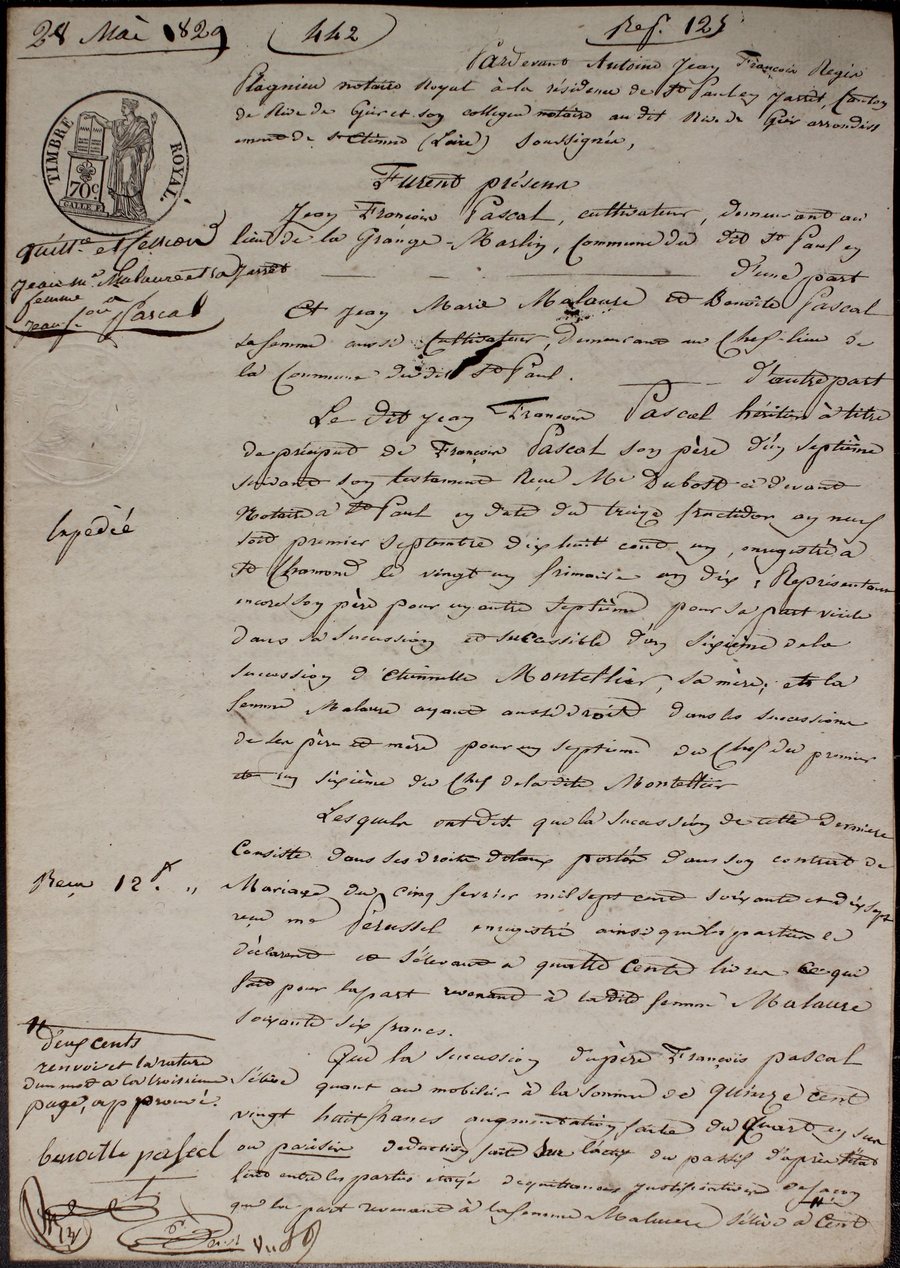 28 Mai 1829
442
Rep. 125
Pardevant Antoine Jean François Regis
Plagnieu notaire Royal à la résidence de St Paul en Jarret, Canton
de Rive de Gier et son collegue notaire au dit Rive de Gier arrondiss
ement de St Etienne (Loire) soussignés,
TIMBRE ROYAL.
70 c
Furent présens
Jean François Pascal, cultivateur, demeurant au
lieu de la Grange-Marlin, Commune du dit St Paul en
Jarret d'une part
quitt.ce et Cession
Jean M.e Malaure et sa
femme
à
Jean f.ois Pascal
Et Jean Marie Malaure et Benoîte Pascal
sa femme aussi Cultivateurs, demeurant au Chef-lieu de
la Commune du dit St Paul. d'autre part
Le dit Jean François Pascal héritier à titre
de préciput de François Pascal son père d'un septième
suivant son testament Reçu Me Dubost ci devant
Notaire à St Paul en date du treize fructidor an neuf
soit premier septembre dix huit cent un, enregistré à
St Chamond le vingt un frimaire an dix, Représentant
encore son père pour un autre septième pour sa part
dans sa succession et successible d'un sixième de la
succession d'Etiennette Montellier, sa mère; et la
femme Malaure ayant aussi droit dans les successions
de ses père et mère pour un septième du Chef du premier
et un sixième du Chef de la dite Montellier
Expédié
Lesquels ont dit que la succession de cette dernière
Consiste dans ses droits dotaux portés dans son contrat de
Mariage du cinq février mil sept cent soixante et dix sept
reçu me Pérussel enregistré ainsi que les parties le
déclarent et s'élevant à quatre cents livres ce qui
fait pour la part revenant à la dite femme Malaure
soixante six francs.
Reçu 12 f. "
Que la succession du père François pascal
s'élève quant au mobilier à la somme de quinze cent
vingt huit francs augmentation faite du quart en sus
ou parisis deduction faite sur l'actif du passif d'après l'état
fait entre les parties étayé de quittances justificatives de façon
que la part revenant à la femme Malaure s'élève à Cent
d'eux cents
renvoi et la rature
d'un mot à la troisième
page, approuvé.
benoitte pascal